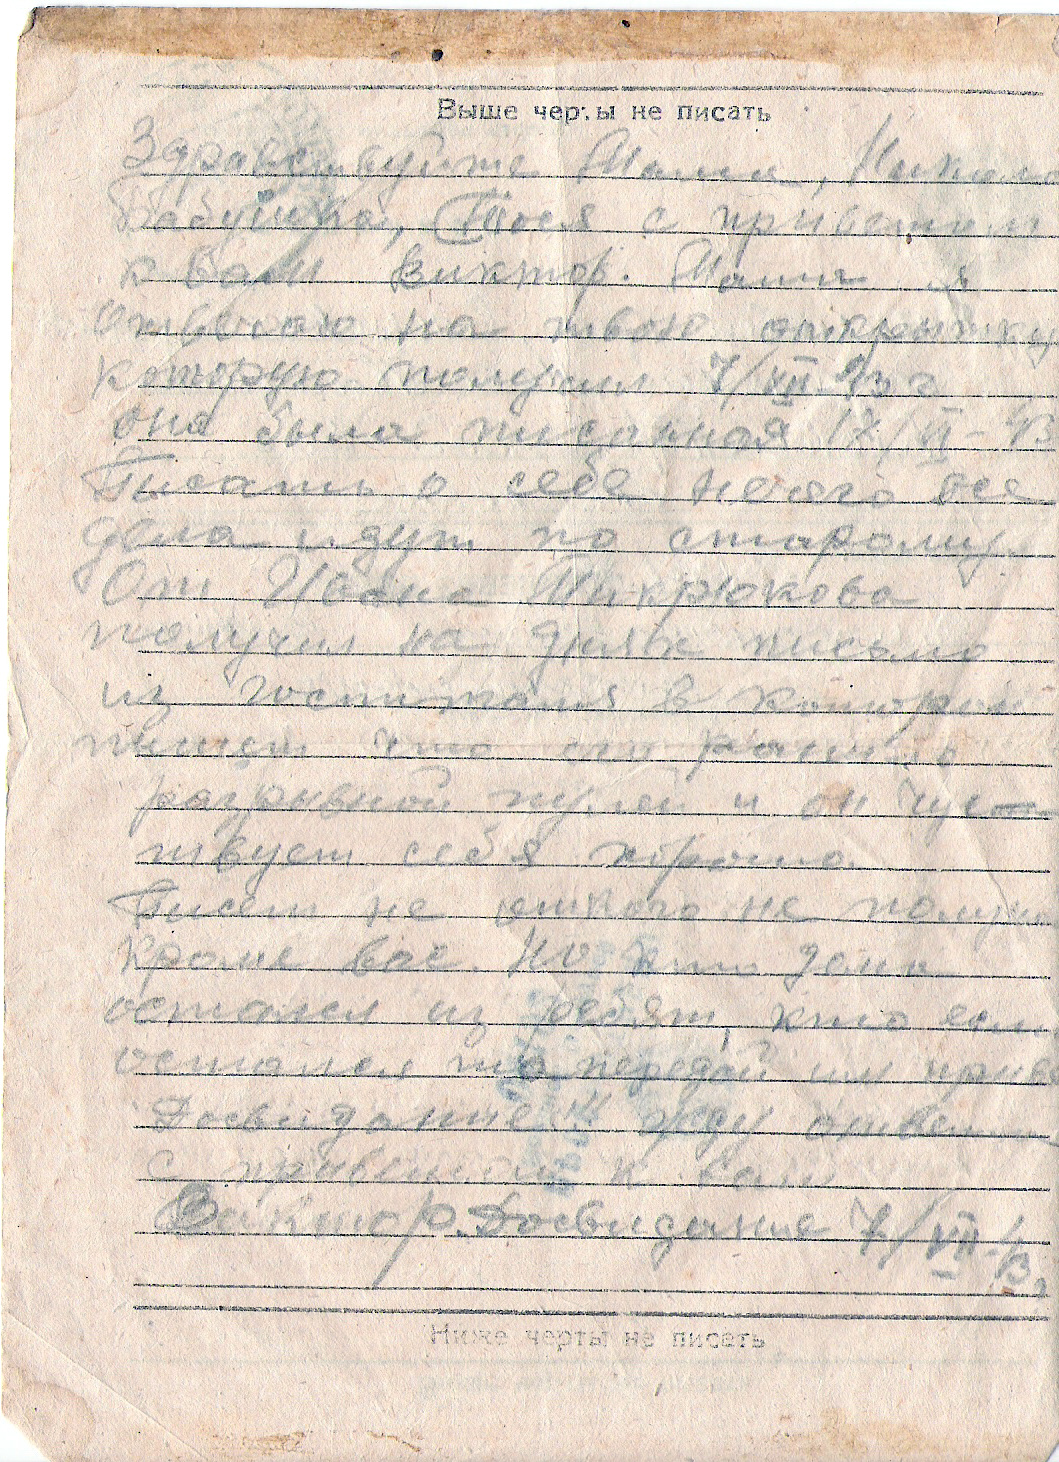 Выше черты не писать
Здравствуйте Мамия, Никола
Бабушка, Тося с приветом
к вам Виктор. Мамия я
отвечаю на твою открытку
которую получил 7/VII-43 г
она была писанная 17/VI-43
Писать о себе нечего все
дела идут по старому.
От Ивана Микрюкова
получил на днях письмо
из госпиталя в которой
пишет что его ранило
разрывной пулей и он чуст
твует себя хорошо.
Писем не откого не получаю
кроме вас. Но кто дома
остался из ребят, кто если
остался то передай им приве
Досвидание!!! жду ответа
с приветом к вам
Виктор. Досвидание 7/VII-43 г
Ниже черты не писать